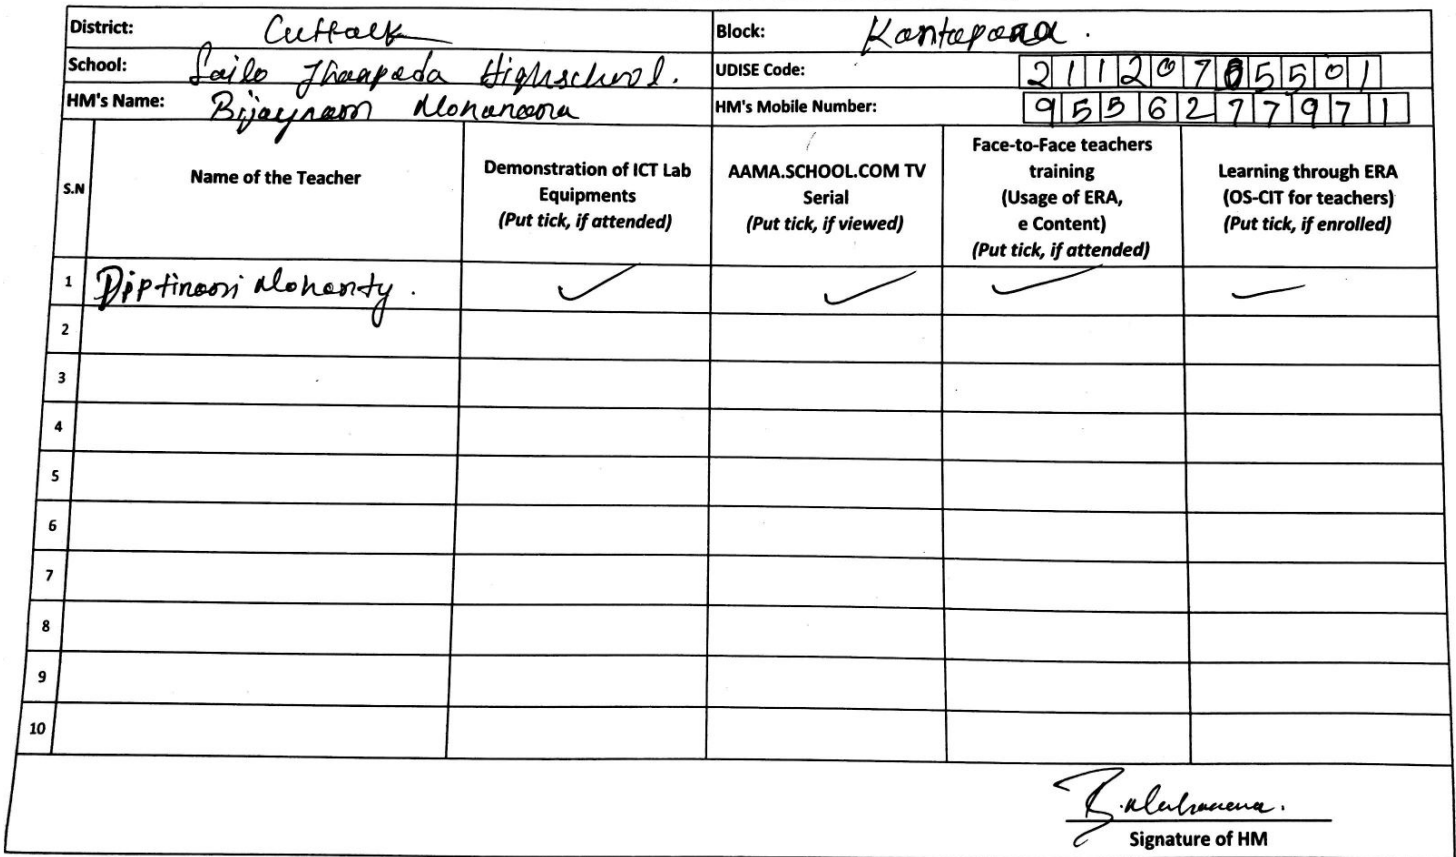 District: Cuttack Block: Kantapada.
School: Sailo Jhaapada Highschool. UDISE Code: 21120705501
HM's Name: HM's Mobile Number: 9556277971
S.N Name of the Teacher Demonstration of ICT Lab Equipments (Put tick, if attended) AAMA.SCHOOL.COM TV Serial (Put tick, if viewed) Face-to-Face teachers training (Usage of ERA, e Content) (Put tick, if attended) Learning through ERA (OS-CIT for teachers) (Put tick, if enrolled)
1 Mohanty. ✓ ✓ ✓ ✓
2
3
4
5
6
7
8
9
10
Signature of HM